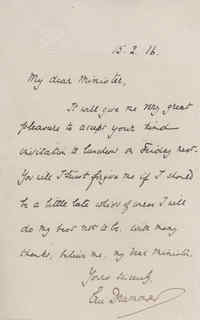 15. 2. 16.
My dear Minister,
It will give me very great
pleasure to accept your kind
invitation to luncheon on Friday next.
You will I trust forgive me if I should
be a little late which of course I will
do my best not to be. With many
thanks, believe me, my dear Minister
Yours sincerely,